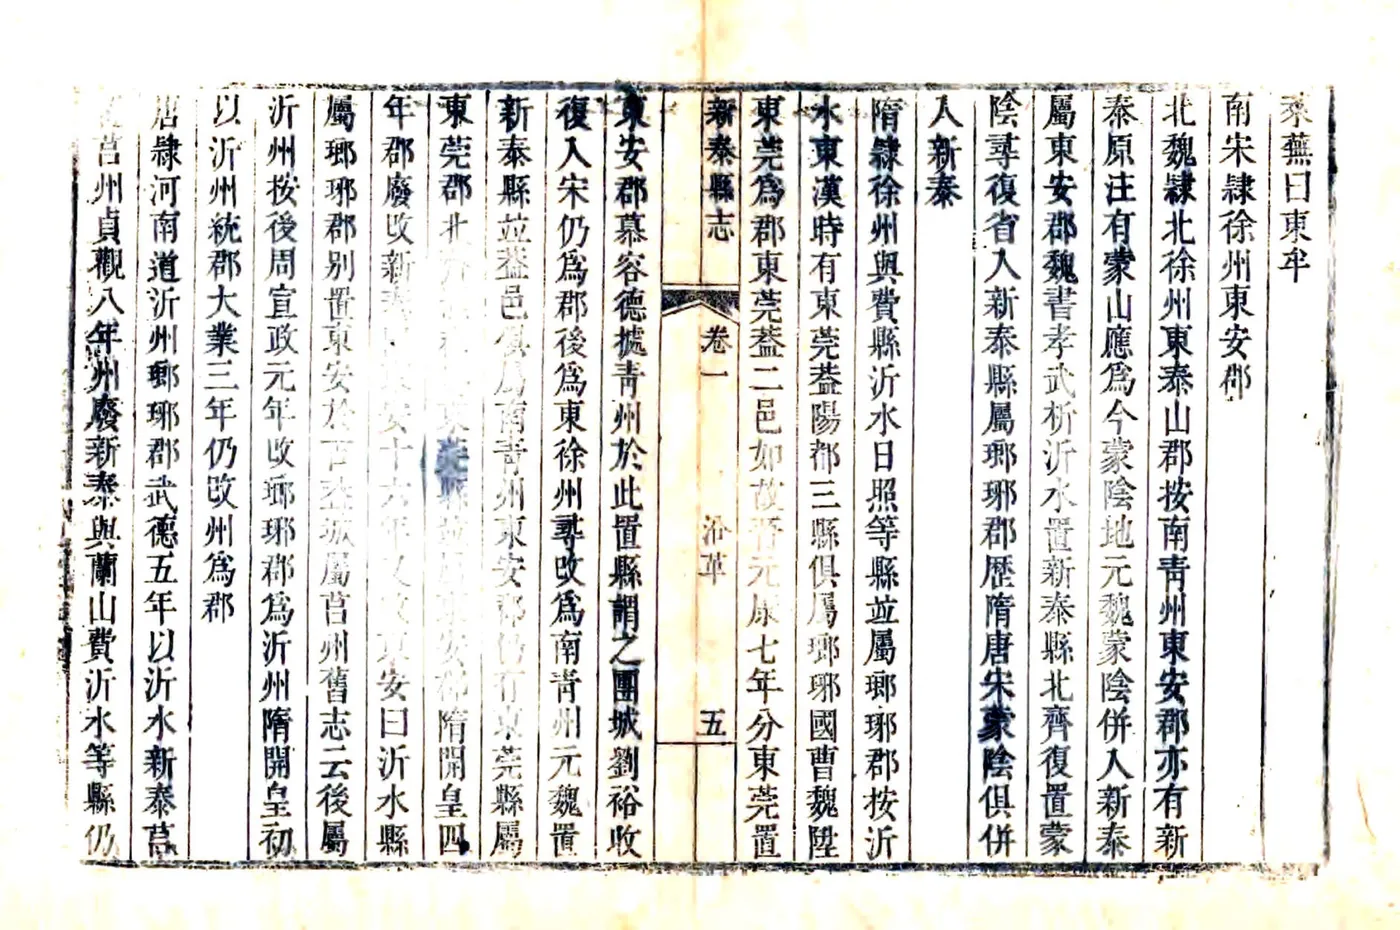 萊蕪曰東牟
南宋隸徐州東安郡
北魏隸北徐州東泰山郡按南靑州東安郡亦有新
泰原注有蒙山應爲今蒙陰地元魏蒙陰併入新泰
屬東安郡魏書孝武析沂水置新泰縣北齊復置蒙
陰尋復省入新泰縣屬瑯琊郡歷隋唐宋蒙陰俱併
入新泰
隋隸徐州與費縣沂水日照等縣並屬瑯琊郡按沂
水東漢時有東莞葢陽都三縣俱屬瑯琊國曹魏陞
東莞爲郡東莞葢二邑如故晉元康七年分東莞置
新泰縣志 卷一 沿革 五
東安郡慕容德據靑州於此置縣謂之團城劉裕收
復入宋仍爲郡後爲東徐州尋改爲南靑州元魏置
新泰縣並葢邑俱屬南靑州東安郡仍有東莞縣屬
東莞郡北 東莞 安郡隋開皇四
年郡廢改新泰 安十六年又改東安曰沂水縣
屬瑯琊郡别置東安於古葢城屬莒州舊志云後屬
沂州按後周宣政元年改瑯琊郡爲沂州隋開皇初
以沂州統郡大業三年仍改州爲郡
唐隸河南道沂州瑯琊郡武德五年以沂水新泰莒
莒州貞觀八年州廢新泰與蘭山費沂水等縣仍